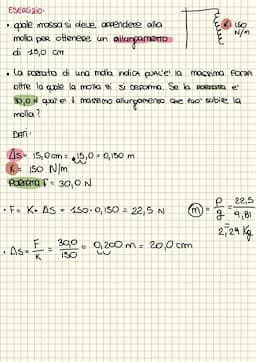 ESERCIZIO:
• quale massa si deve appendere alla
molla per ottenere un allungamento
di 15,0 cm
K 150
N/m
• La portata di una molla indica qual'è la massima forza
oltre la quale la molla si si deforma. Se la portata è
30,0 N qual'è il massimo allungamento che può subire la
molla?
DATI:
Δs = 15,0 cm = 15,0 = 0,150 m
K = 150 N/m
PORTATA F = 30,0 N
• F = K • Δs = 150 • 0,150 = 22,5 N
m = P/g = 22,5/9,81
2,29 Kg
• Δs = F/K = 30,0/150 = 0,200 m = 20,0 cm